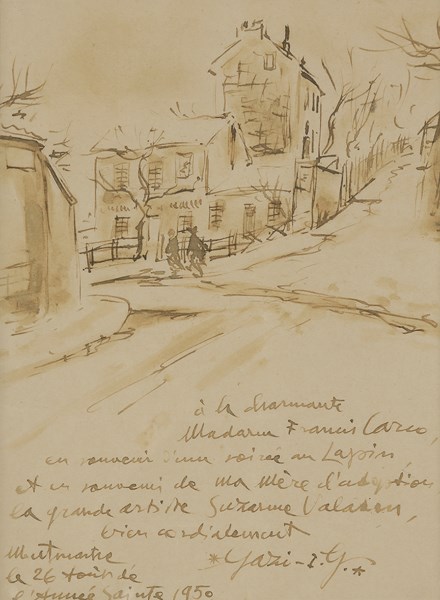 à la charmante
Madame Francis Carco,
en souvenir d'une soirée au Lapin,
et en souvenir de ma Mère d'adoption
la grande artiste Suzanne Valadon,
bien cordialement
Montmartre *Gazi-I.G.*
le 26 Août de
l'Année Sainte 1950